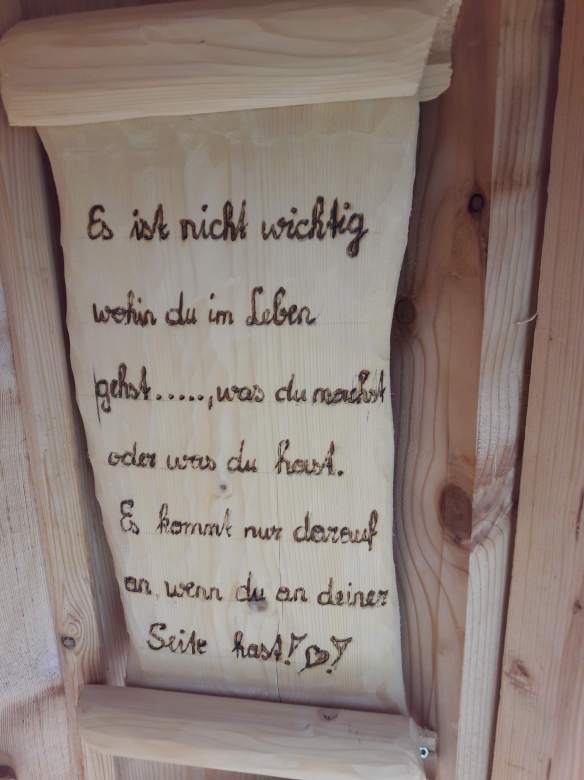 Es ist nicht wichtig
wohin du im Leben
gehst....., was du machst
oder was du hast.
Es kommt nur darauf
an, wenn du an deiner
Seite hast!♡!